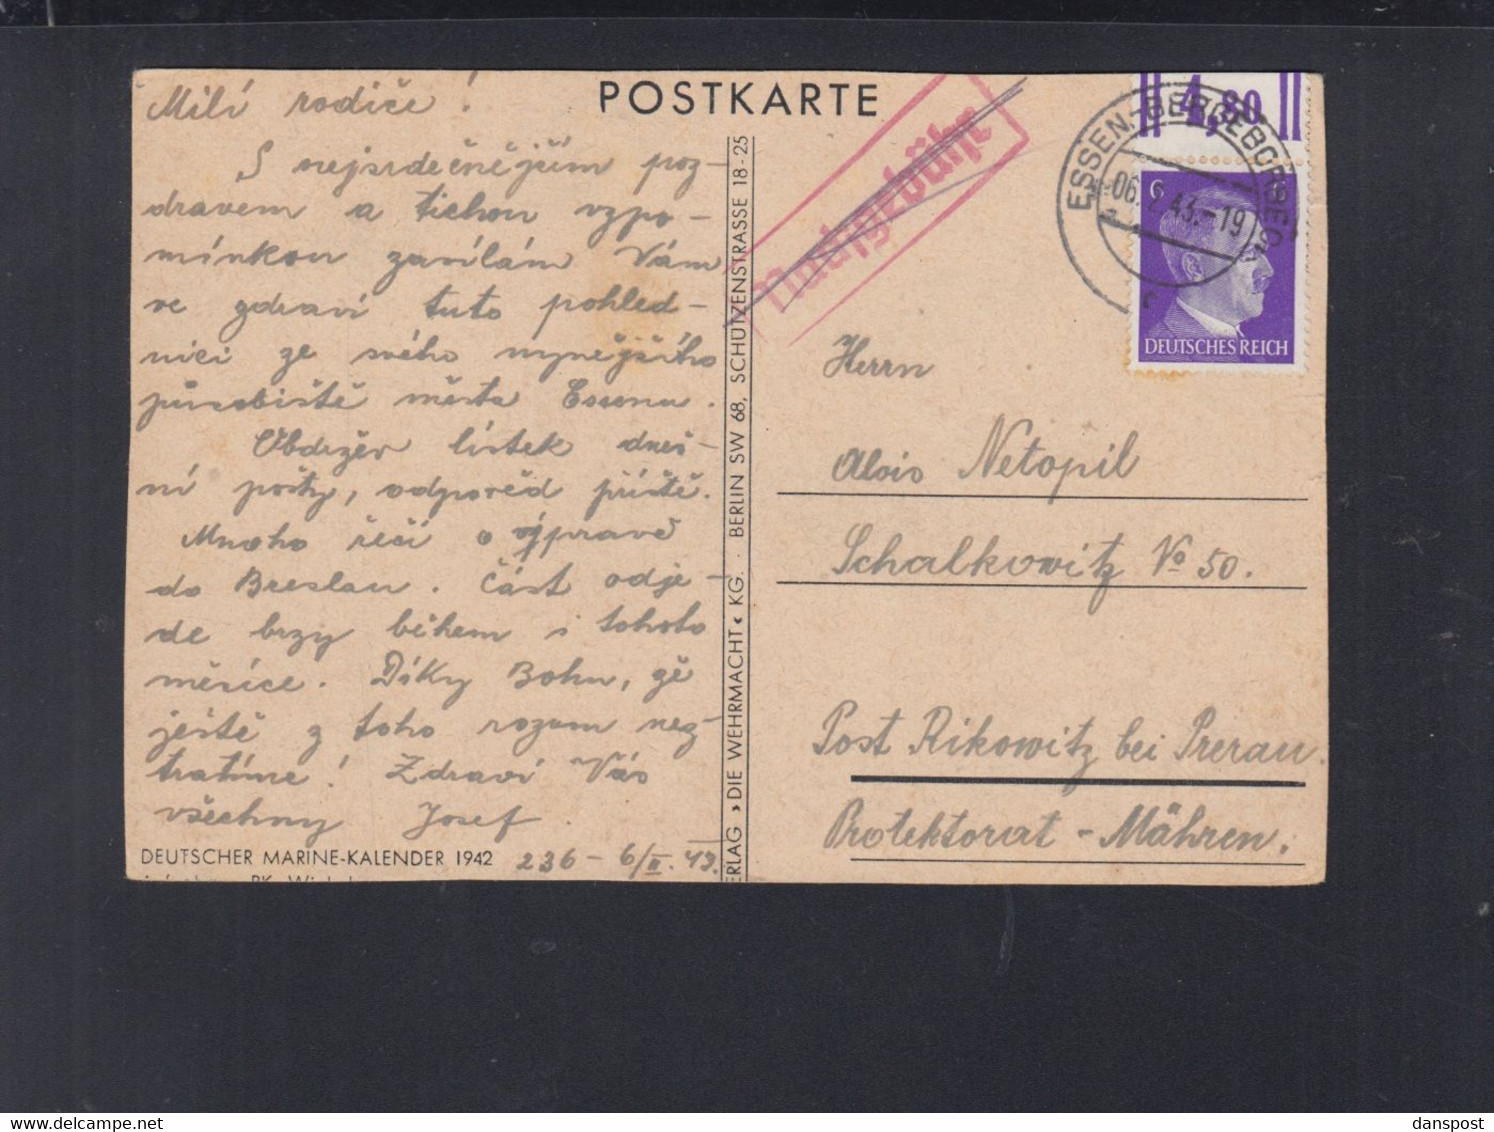 POSTKARTE
Milí rodiče!
S nejsrdečnějším poz-
dravem a tichou vzpo-
mínkou zasílám Vám
ve zdraví tuto pohled-
nici ze svého nynějšího
působiště města Essenu.
Obdržev lístek dneš-
ní pošty, odpověd příště.
Mnoho řečí o výpravě
do Breslau. Část odje-
de brzy během i tohoto
měsíce. Díky Bohu, že
ještě z toho rozum nez-
tratíme! Zdraví Vás
všechny Josef
DEUTSCHER MARINE-KALENDER 1942
236 - 6/II. 43.
ERLAG »DIE WEHRMACHT« KG. · BERLIN SW 68, SCHÜTZENSTRASSE 18-25
Nachgebühr
4,80
ESSEN-BERGEBORBECK
06.2.43.-19
c
6
DEUTSCHES REICH
Herrn
Alois Netopil
Schalkowitz No 50.
Post Rikowitz bei Prerau.
Protektorat - Mähren.
danspost